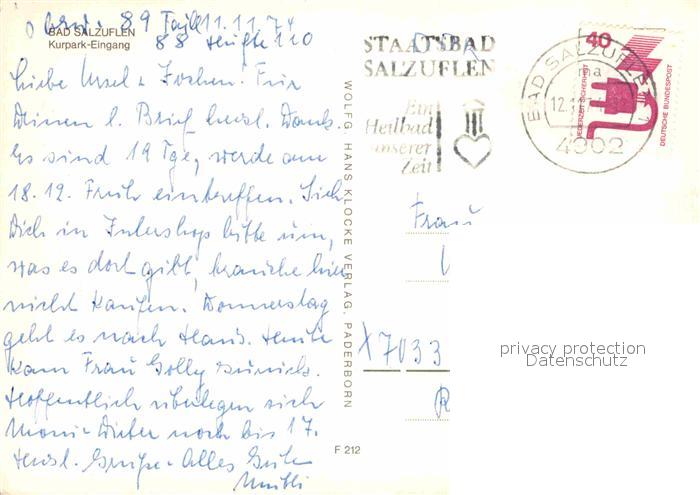 89 Taille 11.11.74
88 Hüfte 110
BAD SALZUFLEN
Kurpark-Eingang
Liebe Ursel u. Jochen. Für
Deinen l. Brief herzl. Dank.
Es sind 19 Tge, werde am
18.12. Früh eintreffen. Sieh
Dich in Intershop bitte um,
was es dort gibt, brauche hier
nicht kaufen. Donnerstag
geht es nach Haus. Heute
kam Frau Golly zurück.
Hoffentlich überlegen sich
Moni-Dieter noch bis 17.
Herzl. Grüße - Alles Gute
Mutti
WOLFG. HANS KLOCKE VERLAG, PADERBORN
F 212
STAATSBAD
SALZUFLEN
Ein
Heilbad
unserer
Zeit
BAD SALZUFLEN 1
ma
4902
40
JEDERZEIT SICHERHEIT
DEUTSCHE BUNDESPOST
DDR
Frau
X7033
privacy protection
Datenschutz